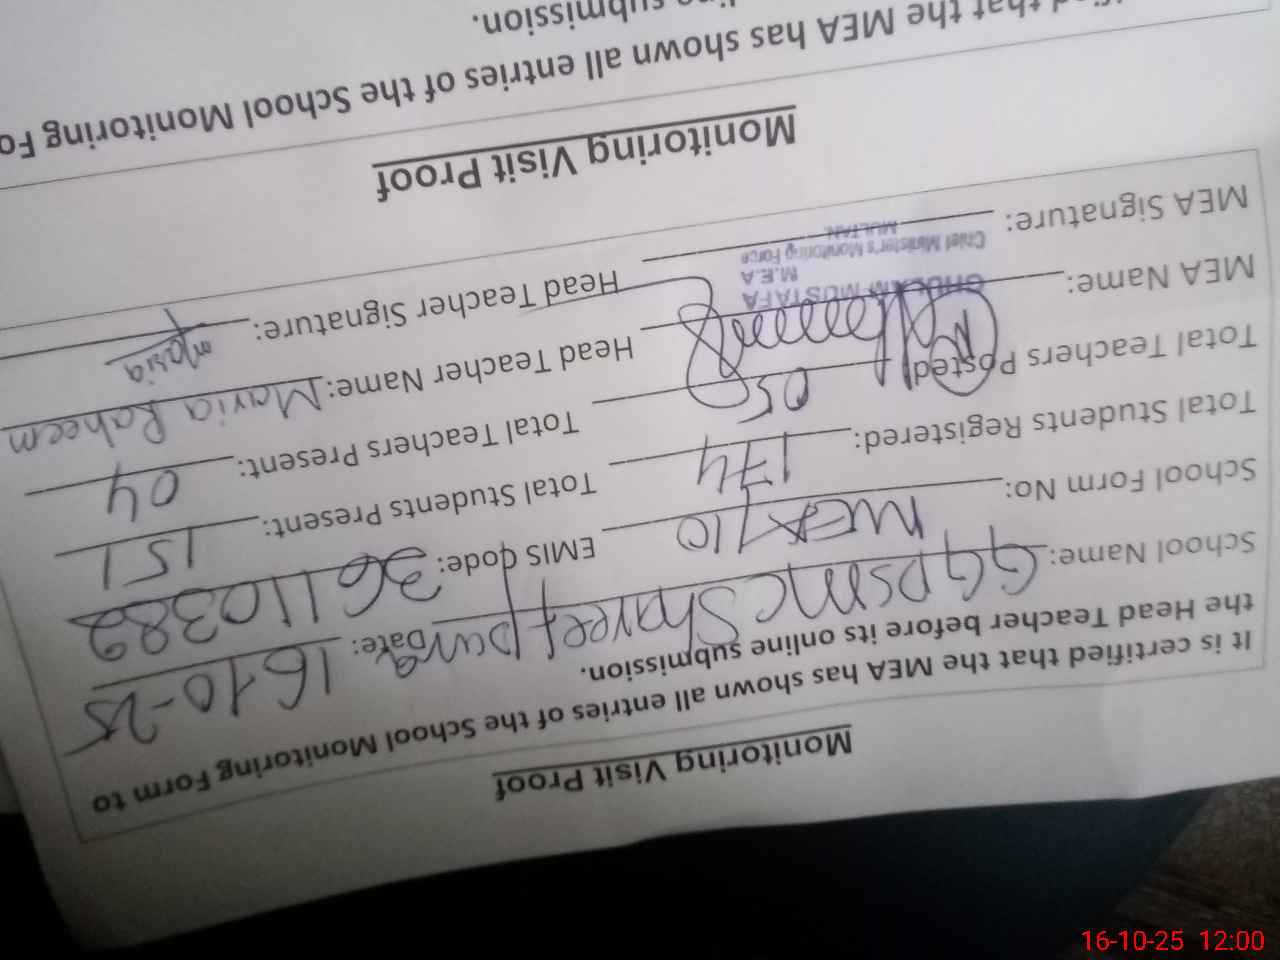 Monitoring Visit Proof
It is certified that the MEA has shown all entries of the School Monitoring Form to
the Head Teacher before its online submission.
School Name: GGPSMC Shareef pura Date: 16-10-25
School Form No: MEA 10 EMIS Code: 36110382
Total Students Registered: 174 Total Students Present: 151
Total Teachers Posted 05 Total Teachers Present: 04
MEA Name: Head Teacher Name: Maria Raheem
GHULAM MUSTAFA
M.E.A
Chief Minister's Monitoring Force
MULTAN
MEA Signature: Head Teacher Signature: Maria
Monitoring Visit Proof
that the MEA has shown all entries of the School Monitoring Fo
submission.
16-10-25 12:00